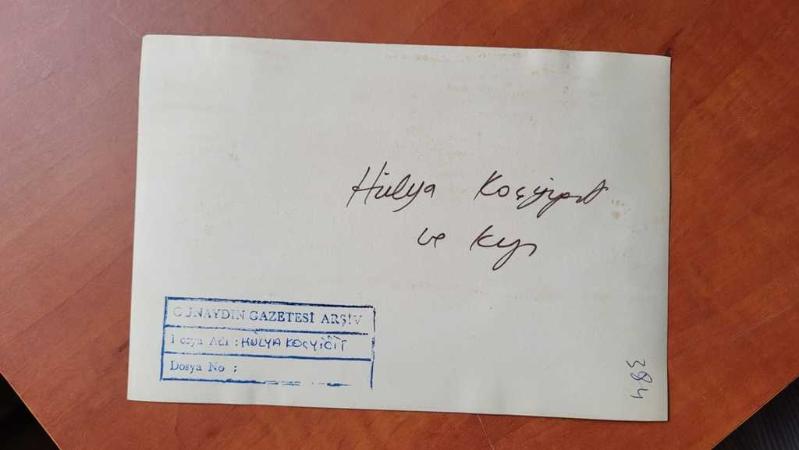 Hülya Koçyiğit
ve kızı
GÜNAYDIN GAZETESİ ARŞİV
Dosya Adı : HÜLYA KOÇYİĞİT
Dosya No :
384